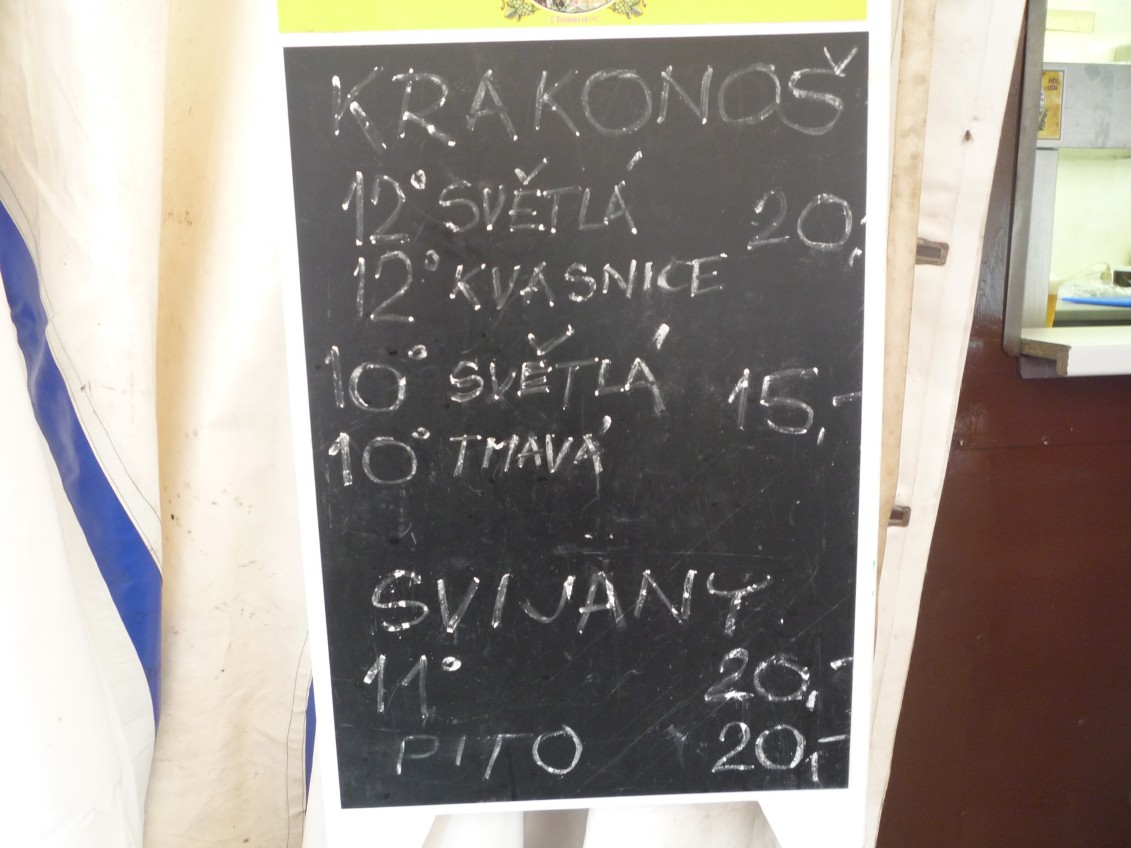 KRAKONOŠ
12° SVĚTLÁ 20,-
12° KVASNICE
10° SVĚTLÁ 15,-
10° TMAVÁ
SVIJANY
11° 20,-
PITO 20,-